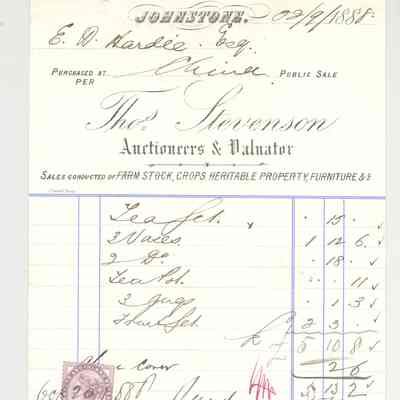 JOHNSTONE. 02/9/1888
E. D. Hardie. Esq.
PURCHASED AT China PUBLIC SALE
PER
Thos. Stevenson
Auctioneers & Valuator
SALES CONDUCTED OF FARM STOCK, CROPS HERITABLE PROPERTY, FURNITURE &c
Tea Set. " 15 "
3 Vases. 1 12 6
2 Do " 18 "
Tea Pot. " " 11
3 Jugs " 1 3
2 3 "
£ 5 10 8
Cover 2 6
5 13 2